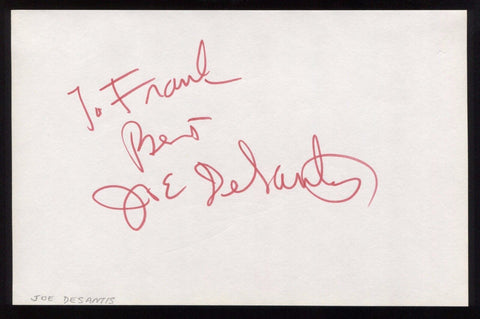 To Frank
Best
Joe DeSantis
JOE DESANTIS